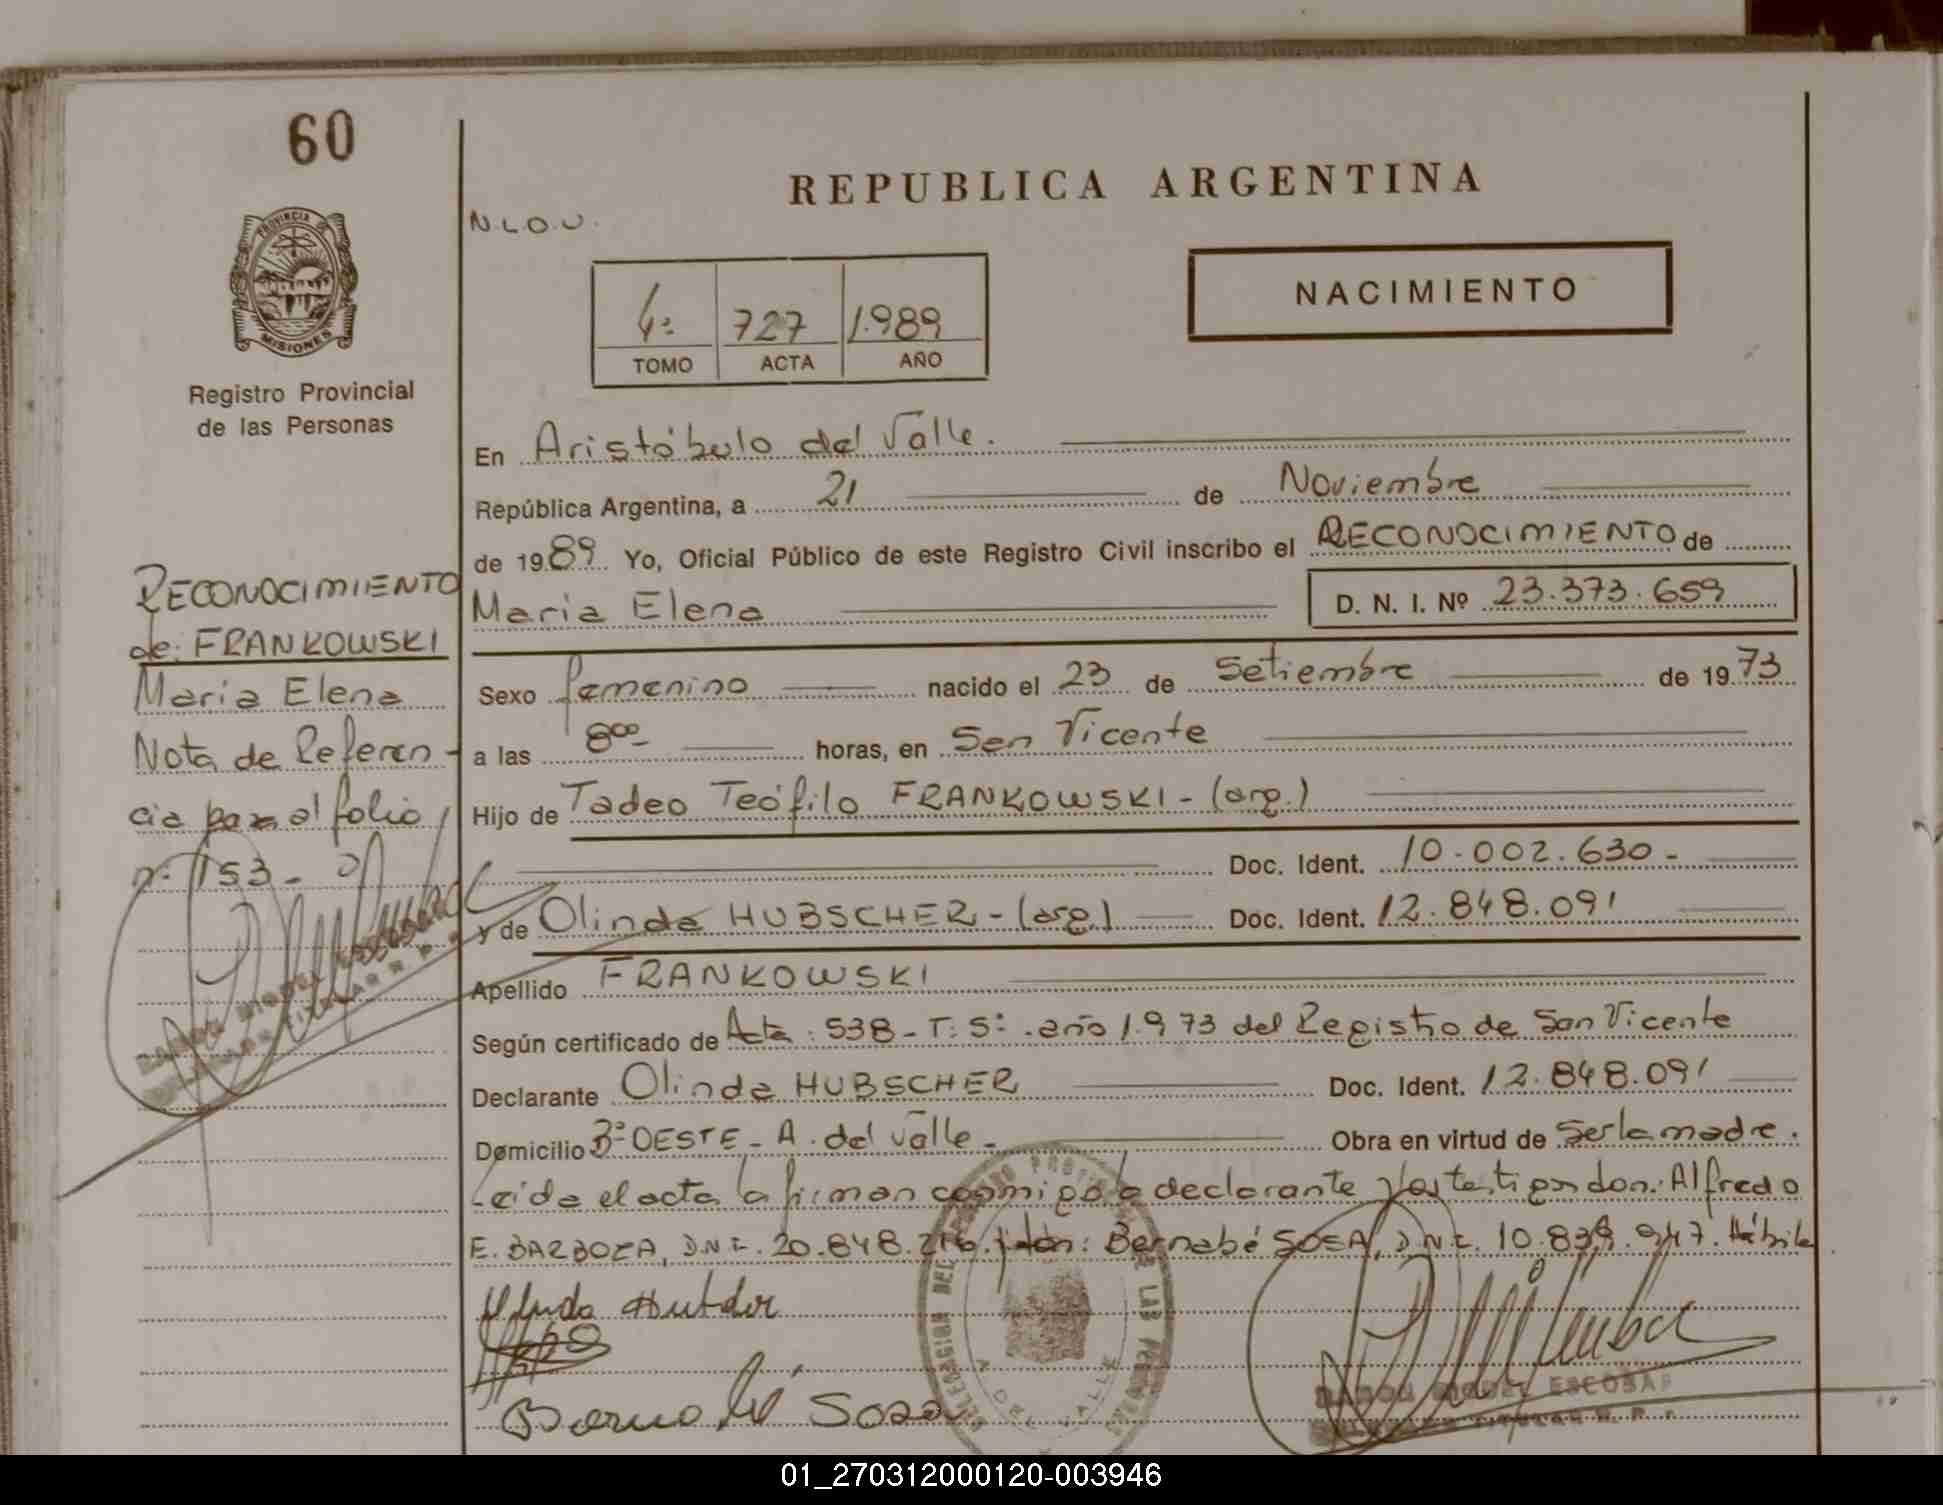 60
REPUBLICA ARGENTINA
N.L.O.U.
PROVINCIA DE
MISIONES
Registro Provincial
de las Personas
NACIMIENTO
4º 727 1.989
TOMO ACTA AÑO
En Aristóbulo del Valle.
República Argentina, a 21 de Noviembre
de 1989 Yo, Oficial Público de este Registro Civil inscribo el RECONOCIMIENTO de
Maria Elena D. N. I. Nº 23.373.659
Sexo femenino nacido el 23 de Setiembre de 1973
a las 8 00 horas, en San Vicente
Hijo de Tadeo Teófilo FRANKOWSKI - (arg.)
Doc. Ident. 10.002.630 -
y de Olinda HUBSCHER - (arg.) Doc. Ident. 12.848.091
Apellido FRANKOWSKI
Según certificado de Acta: 538 - T: 5º año 1.973 del Registro de San Vicente
Declarante Olinda HUBSCHER Doc. Ident. 12.848.091
Domicilio Bº OESTE - A. del Valle - Obra en virtud de Ser la madre.
Leida el acta la firman conmigo la declarante y los testigos don: Alfredo
E. BARBOZA, D.N.I. 20.848.216. y don: Bernabé SOSA, D.N.I. 10.839.947. Hábiles
Bernabé Sosa
A. DEL VALLE
MIGUEL ESCOBAR
RECONOCIMIENTO
de: FRANKOWSKI
Maria Elena
Nota de Referen-
cia pasa al folio
nº 153 -
MIGUEL ESCOBAR
01_270312000120-003946